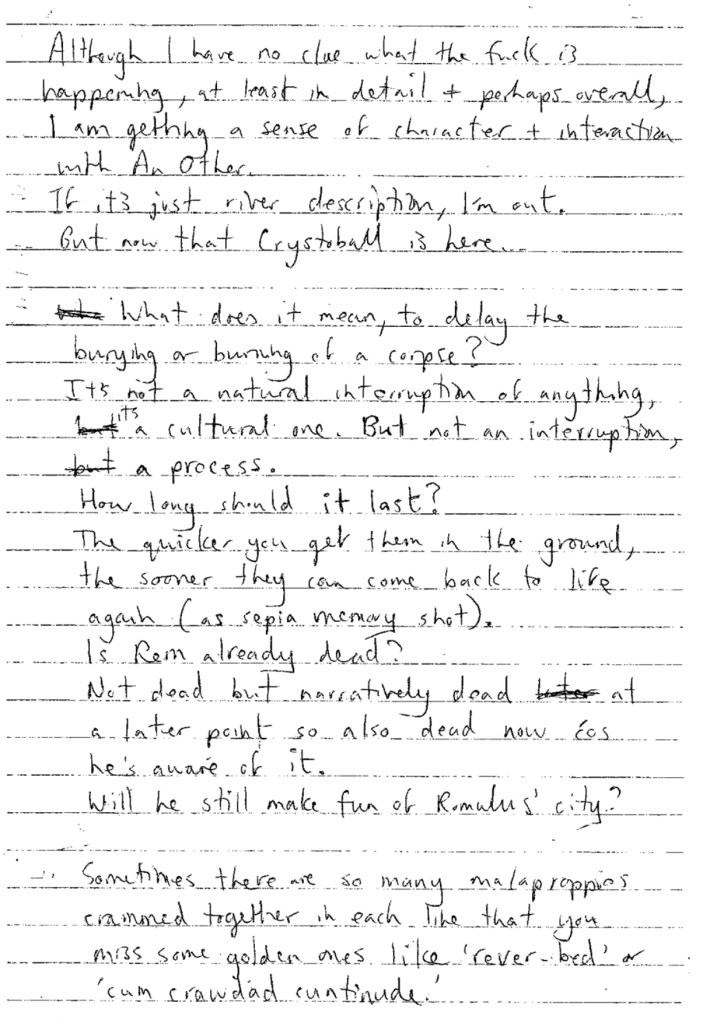 Although I have no clue what the fuck is
happening, at least in detail + perhaps overall,
I am getting a sense of character + interaction
with An Other.
If it's just river description, I'm out.
But now that Crystoball is here...
What does it mean, to delay the
burying or burning of a corpse?
It's not a natural interruption of anything,
but it's a cultural one. But not an interruption,
but a process.
How long should it last?
The quicker you get them in the ground,
the sooner they can come back to life
again (as sepia memory shot).
Is Rem already dead?
Not dead but narratively dead later at
a later point so also dead now cos
he's aware of it.
Will he still make fun of Romulus' city?
Sometimes there are so many malaproppies
crammed together in each line that you
miss some golden ones like 'rever-bed' or
'cum crawdad cuntinude.'